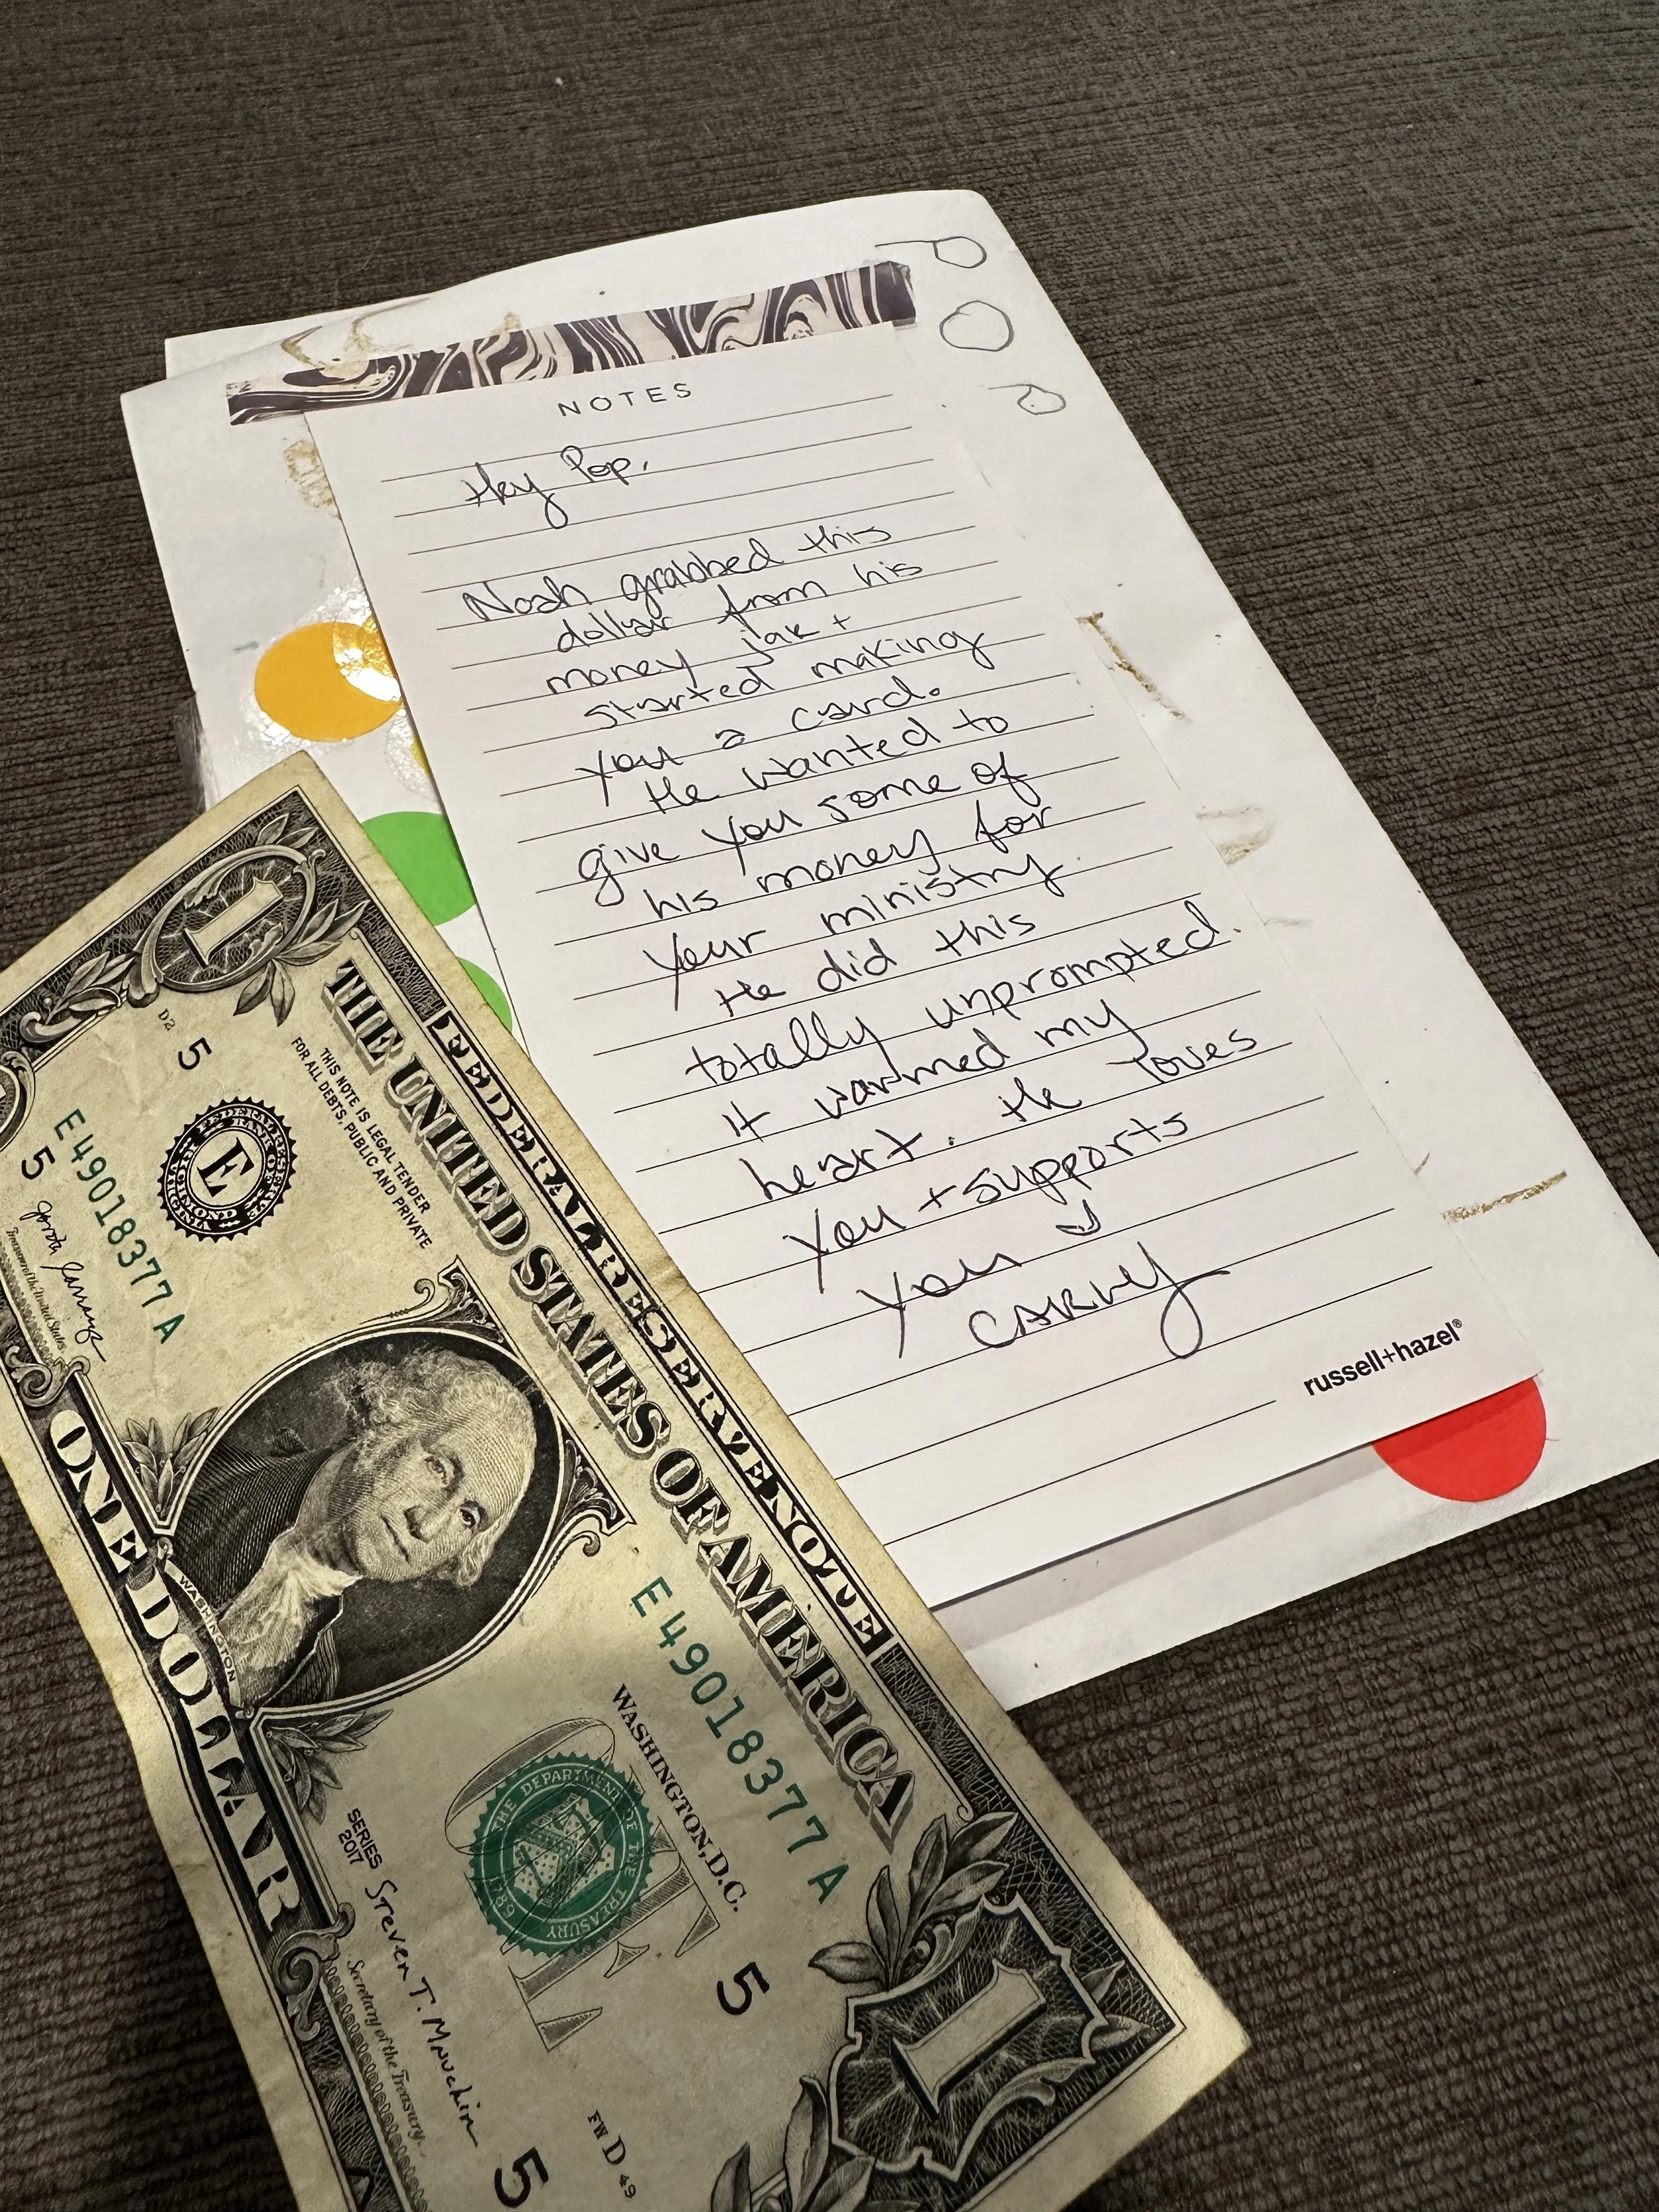 POP
NOTES
Hey Pop,
Noah grabbed this
dollar from his
money jar +
started making
you a card.
He wanted to
give you some of
his money for
your ministry
He did this
totally unprompted.
It warmed my
heart. He loves
you + supports
you
russell+hazel®
FEDERAL RESERVE NOTE
THE UNITED STATES OF AMERICA
THIS NOTE IS LEGAL TENDER
FOR ALL DEBTS, PUBLIC AND PRIVATE
1
D2
5
E
E 49018377 A
5
Treasurer of the United States.
WASHINGTON
E 49018377 A
WASHINGTON, D.C.
ONE
THE DEPARTMENT OF THE TREASURY
1789
5
1
SERIES
2017
Steven T. Mnuchin
Secretary of the Treasury.
FW D 49
5
ONE DOLLAR